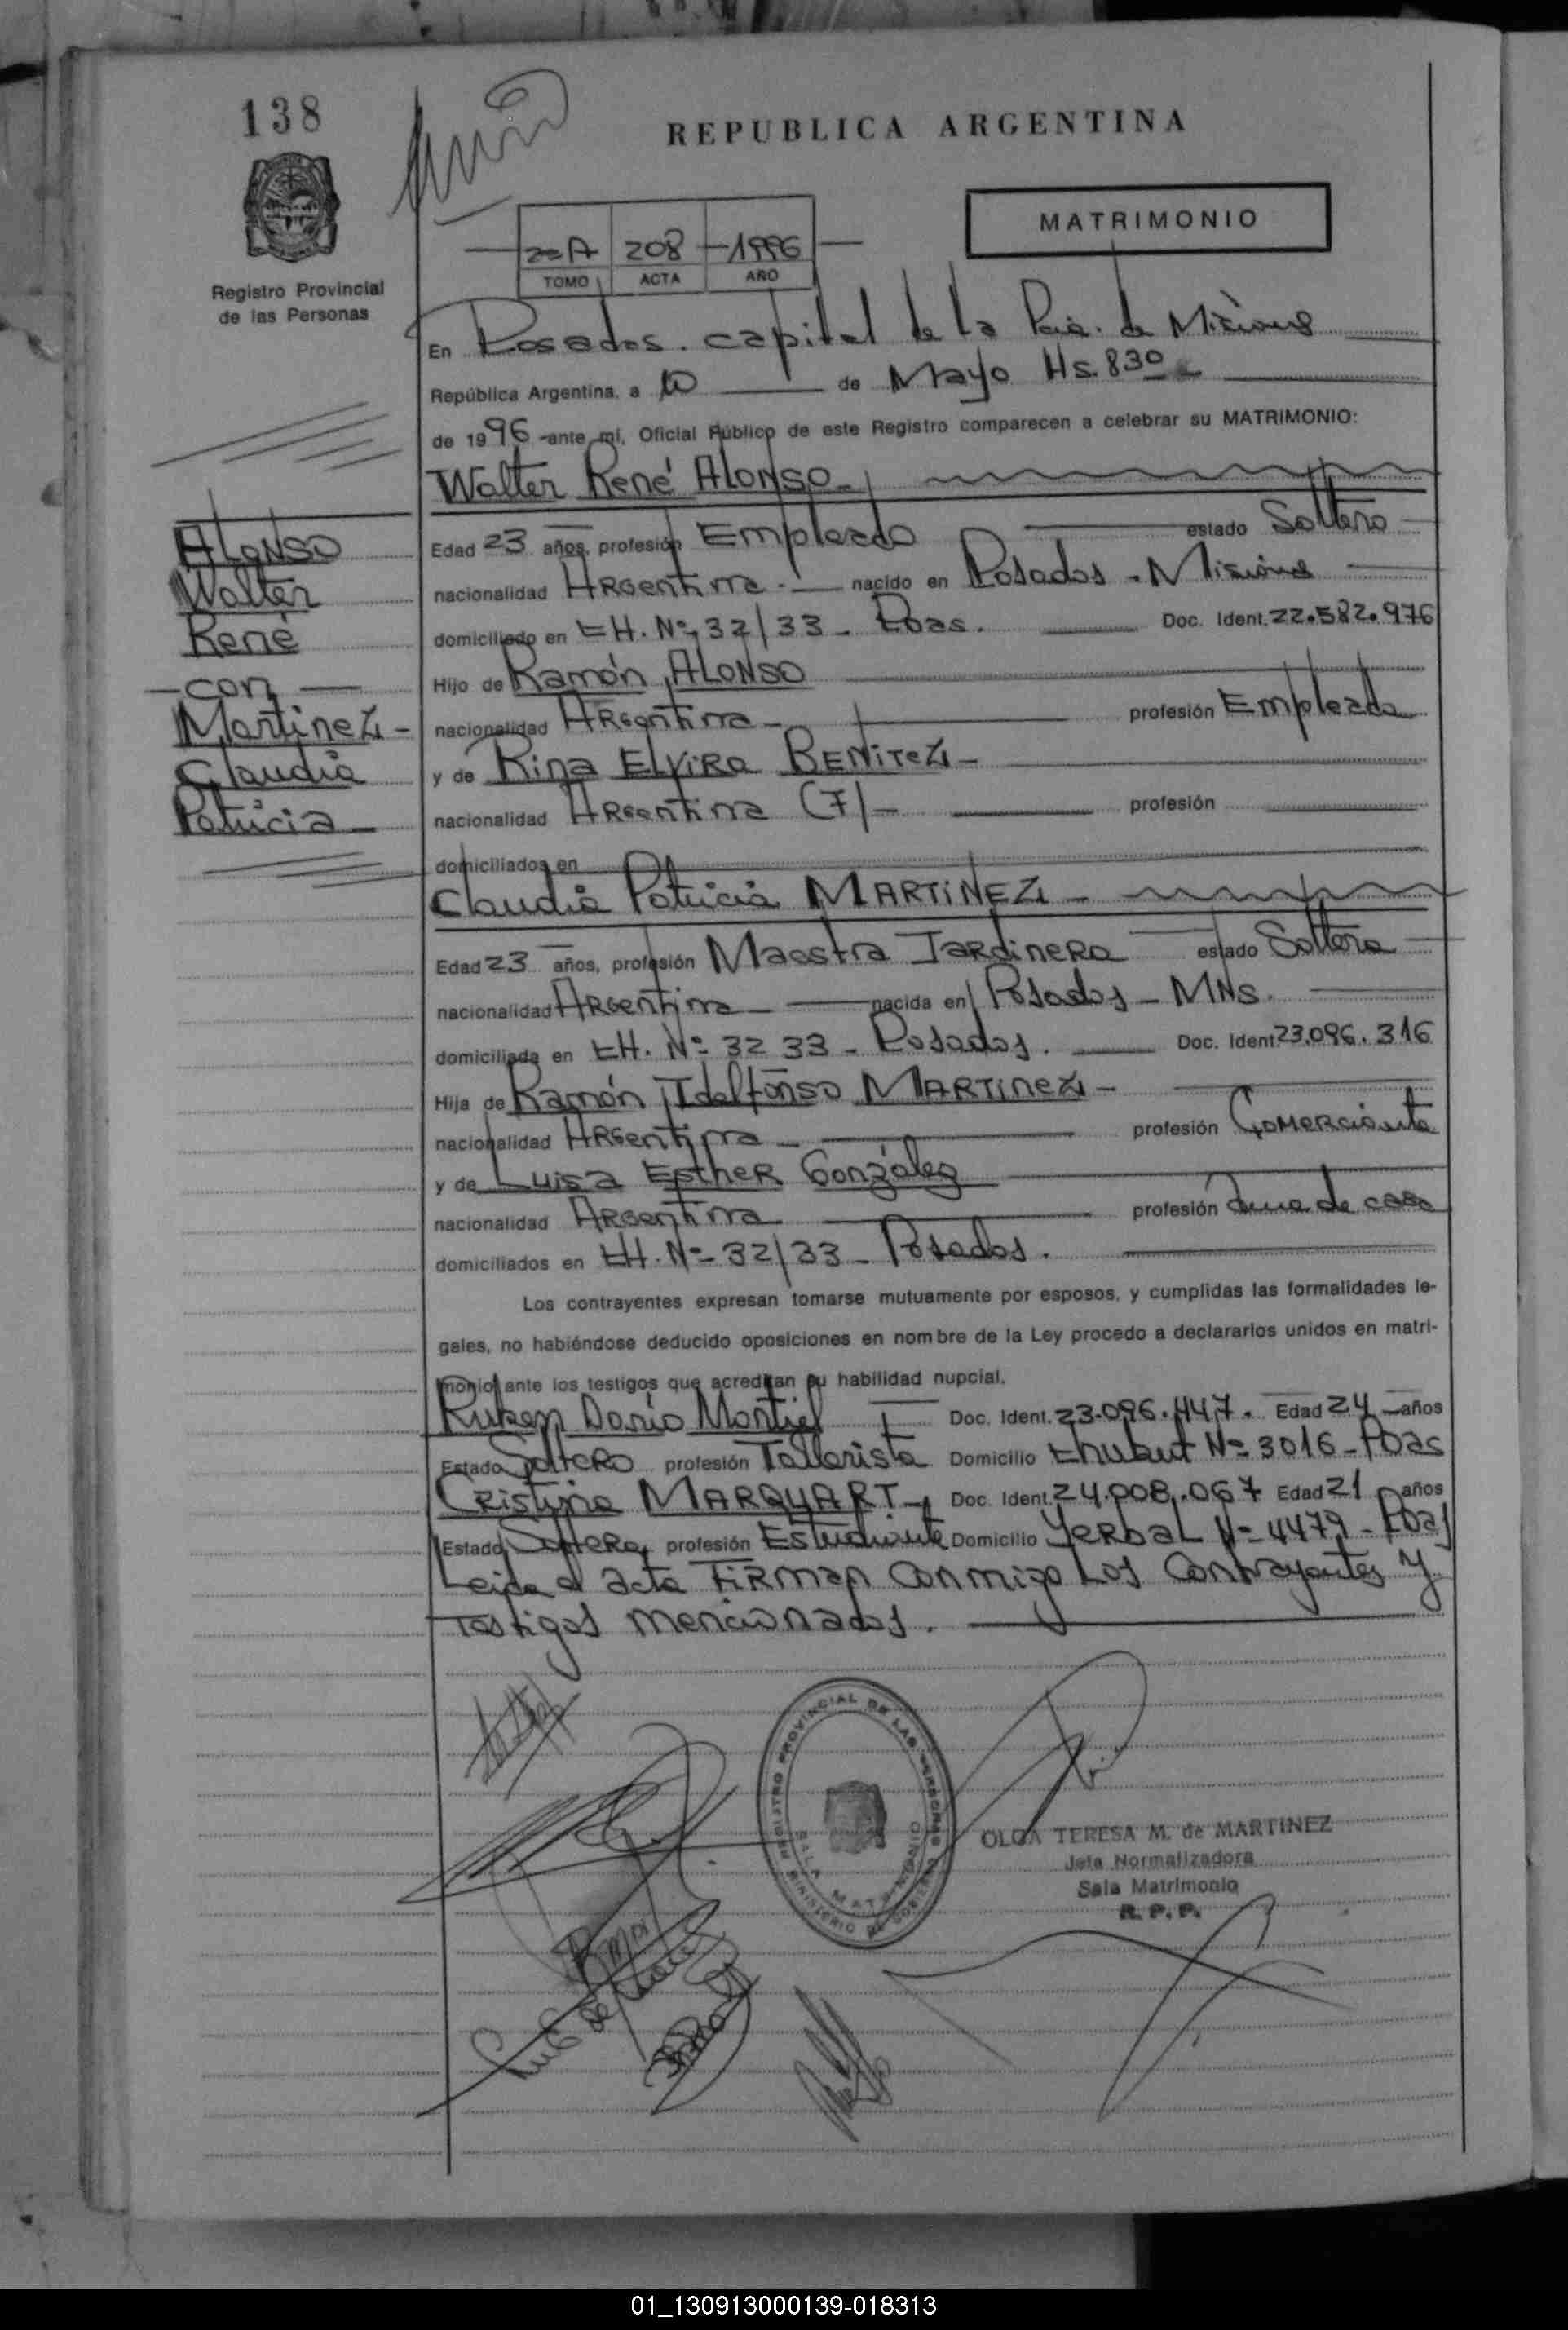 138
REPUBLICA ARGENTINA
MATRIMONIO
Registro Provincial
de las Personas
A 208 1996
TOMO ACTA AÑO
En Posadas. capital de la Pcia. de Misiones
República Argentina, a 10 de Mayo Hs. 830
de 1996 -ante mí, Oficial Público de este Registro comparecen a celebrar su MATRIMONIO:
Walter René Alonso
Edad 23 años, profesión Empleado estado Soltero
nacionalidad Argentina nacido en Posadas - Misiones
domiciliado en CH. Nº 32/33 - Pdas. Doc. Ident. 22.582.976
Hijo de Ramón ALONSO
nacionalidad Argentina profesión Empleado
y de Rina Elvira BENITEZ
nacionalidad Argentina (F) profesión
domiciliados en
ALONSO
Walter
René
- con -
Martinez -
Claudia
Patricia
Claudia Patricia MARTINEZ
Edad 23 años, profesión Maestra Jardinera estado Soltera
nacionalidad Argentina nacida en Posadas - MNS.
domiciliada en CH. Nº 32 33 - Posadas. Doc. Ident. 23.096.316
Hija de Ramón Idelfonso MARTINEZ -
nacionalidad Argentina profesión Comerciante
y de Luisa Esther González
nacionalidad Argentina profesión Ama de casa
domiciliados en CH. Nº 32/33 - Posadas.
Los contrayentes expresan tomarse mutuamente por esposos, y cumplidas las formalidades le-
gales, no habiéndose deducido oposiciones en nombre de la Ley procedo a declararlos unidos en matri-
monio ante los testigos que acreditan su habilidad nupcial.
Ruben Darío Montiel Doc. Ident. 23.096.447. Edad 24 años
Estado Soltero profesión Tallerista Domicilio Chubut Nº 3016 - Pdas
Cristina MARQUART Doc. Ident. 24.008.067 Edad 21 años
Estado Soltera profesión Estudiante Domicilio Yerbal Nº 4479 - Pdas
Leida el acta Firman conmigo Los Contrayentes y
Testigos mencionados.
REGISTRO PROVINCIAL DE LAS PERSONAS
MINISTERIO DE GOBIERNO
SALA MATRIMONIO
OLGA TERESA M. de MARTINEZ
Jefa Normalizadora
Sala Matrimonio
R. P. P.
01_130913000139-018313